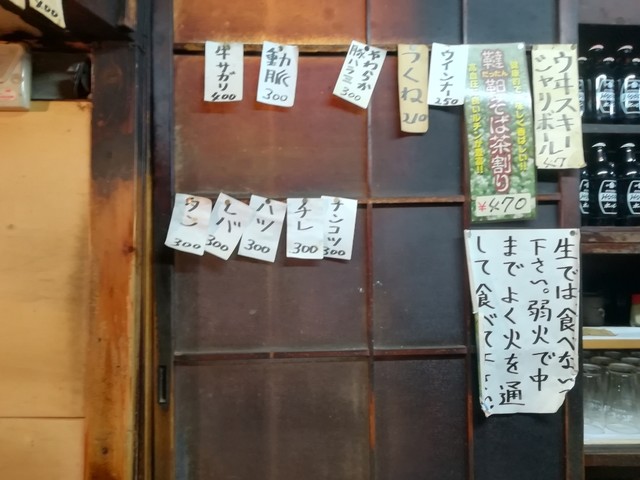 牛サガリ
400
動脈
300
やわらか
豚ハラミ
300
つくね
210
ウインナー
250
韃靼そば茶割り
¥470
ウヰスキー
シャリボール
タン
300
300
ハツ
300
チレ
300
ナンコツ
300
生では食べない
下さい。弱火で中
までよく火を通
して食べて